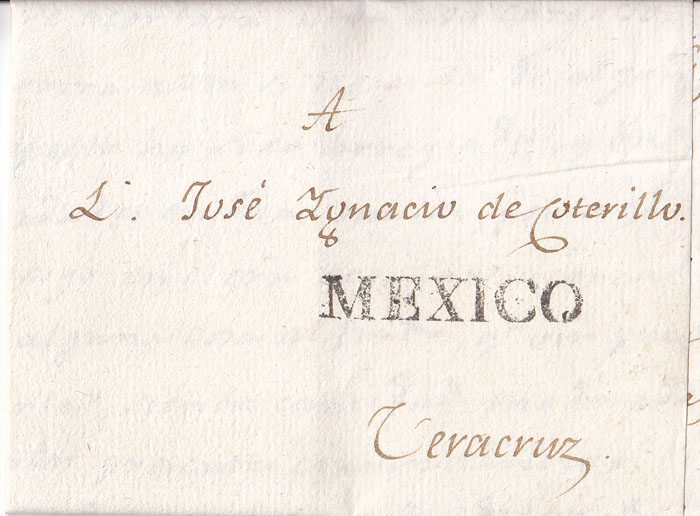 A
L. José Ygnacio de Coterillo.
MEXICO
Veracruz.